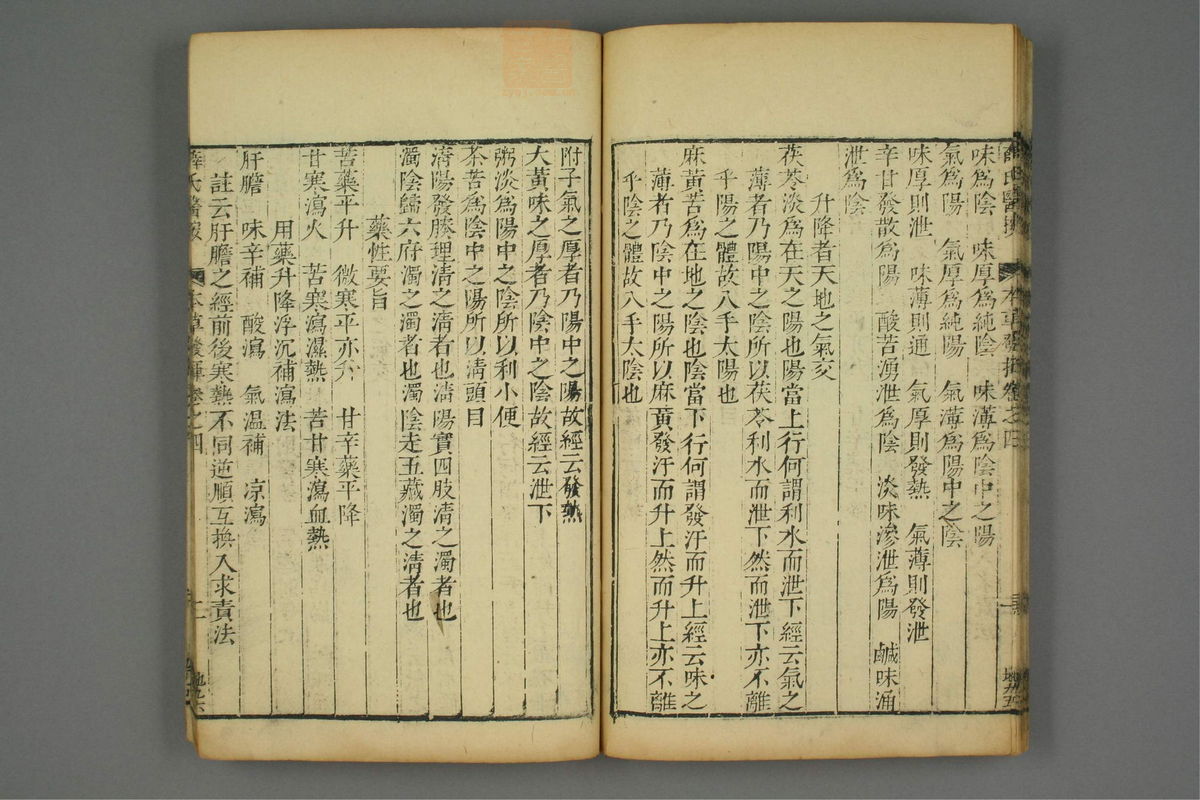 味爲陰 味厚爲純陰 味薄爲陰中之陽
氣爲陽 氣厚爲純陽 氣薄爲陽中之陰
味厚則泄 味薄則通 氣厚則發熱 氣薄則發泄
辛甘發散爲陽 酸苦湧泄爲陰 淡味滲泄爲陽 鹹味涌
泄爲陰
升降者天地之氣交
茯苓淡爲在天之陽也陽當上行何謂利水而泄下經云氣之
薄者乃陽中之陰所以茯苓利水而泄下然而泄下亦不離
乎陽之體故入手太陽也
麻黃苦爲在地之陰也陰當下行何謂發汗而升上經云味之
薄者乃陰中之陽所以麻黃發汗而升上然而升上亦不離
乎陰之體故入手太陰也
附子氣之厚者乃陽中之陽故經云發熱
大黃味之厚者乃陰中之陰故經云泄下
粥淡爲陽中之陰所以利小便
茶苦爲陰中之陽所以淸頭目
淸陽發腠理淸之淸者也淸陽實四肢淸之濁者也
濁陰歸六府濁之濁者也濁陰走五藏濁之淸者也
藥性要旨
苦藥平升 微寒平亦升 甘辛藥平降
甘寒瀉火 苦寒瀉濕熱 苦甘寒瀉血熱
用藥升降浮沉補瀉法
肝膽 味辛補 酸瀉 氣溫補 凉瀉
註云肝膽之經前後寒熱不同逆順互換入求責法
薛氏醫 本草發揮卷之四 二 地九六